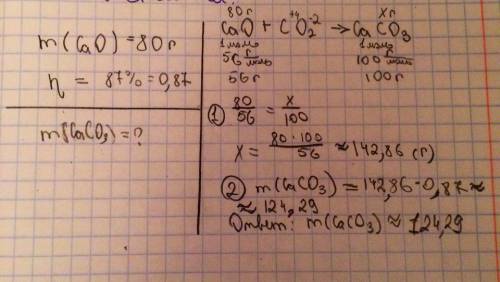 m(CaO)=80г
η = 87%=0,87
m(CaCO₃)=?
80г xг
CaO + C⁺⁴O₂⁻² → CaCO₃
1моль 1моль
56 г/моль 100 г/моль
56г 100г
① 80/56 = x/100
x = 80·100/56 ≈ 142,86 (г)
② m(CaCO₃) = 142,86·0,87 ≈
≈ 124,29
Ответ: m(CaCO₃) ≈ 124,29